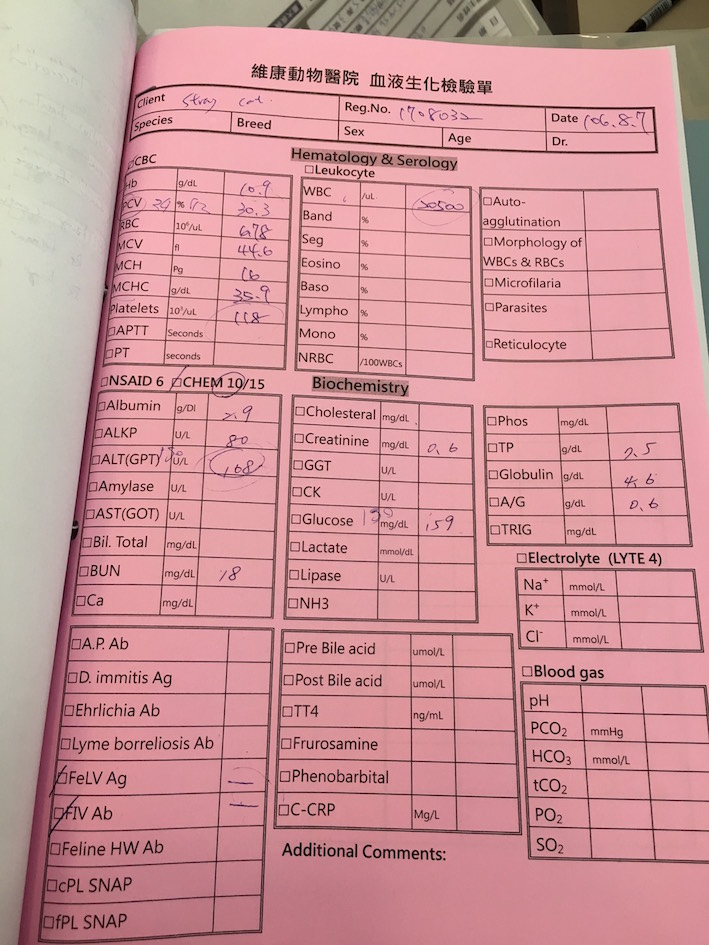 維康動物醫院 血液生化檢驗單
Client Stray cat. Reg.No. 1708032 Date 106.8.7
Species Breed Sex Age Dr.
Hematology & Serology
□CBC
Hb g/dL 10.9
PCV % 30.3
RBC 10⁶/uL 6.78
MCV fl 44.6
MCH Pg 16
MCHC g/dL 35.9
Platelets 10³/uL 118
□APTT Seconds
□PT seconds
□Leukocyte
WBC /uL 20500
Band %
Seg %
Eosino %
Baso %
Lympho %
Mono %
NRBC /100WBCs
□Auto-
agglutination
□Morphology of
WBCs & RBCs
□Microfilaria
□Parasites
□Reticulocyte
□NSAID 6 □CHEM 10/15
Biochemistry
□Albumin g/Dl 2.9
□ALKP U/L 80
□ALT(GPT) 130 U/L 168
□Amylase U/L
□AST(GOT) U/L
□Bil. Total mg/dL
□BUN mg/dL 18
□Ca mg/dL
□Cholesteral mg/dL
□Creatinine mg/dL 0.6
□GGT U/L
□CK U/L
□Glucose mg/dL 159
□Lactate mmol/dL
□Lipase U/L
□NH3
□Phos mg/dL
□TP g/dL 7.5
□Globulin g/dL 4.6
□A/G g/dL 0.6
□TRIG mg/dL
□Electrolyte (LYTE 4)
Na⁺ mmol/L
K⁺ mmol/L
Cl⁻ mmol/L
□A.P. Ab
□D. immitis Ag
□Ehrlichia Ab
□Lyme borreliosis Ab
□FeLV Ag —
□FIV Ab —
□Feline HW Ab
□cPL SNAP
□fPL SNAP
□Pre Bile acid umol/L
□Post Bile acid umol/L
□TT4 ng/mL
□Frurosamine
□Phenobarbital
□C-CRP Mg/L
Additional Comments:
□Blood gas
pH
PCO₂ mmHg
HCO₃ mmol/L
tCO₂
PO₂
SO₂